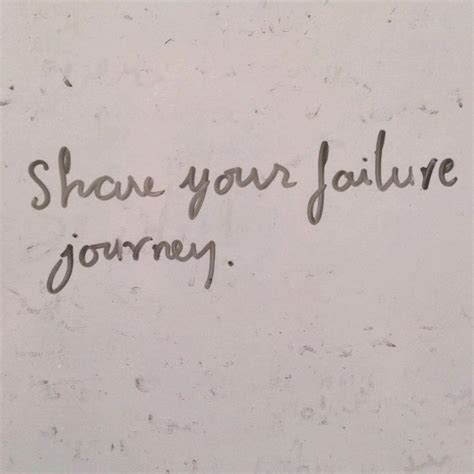 Share your failure
journey.